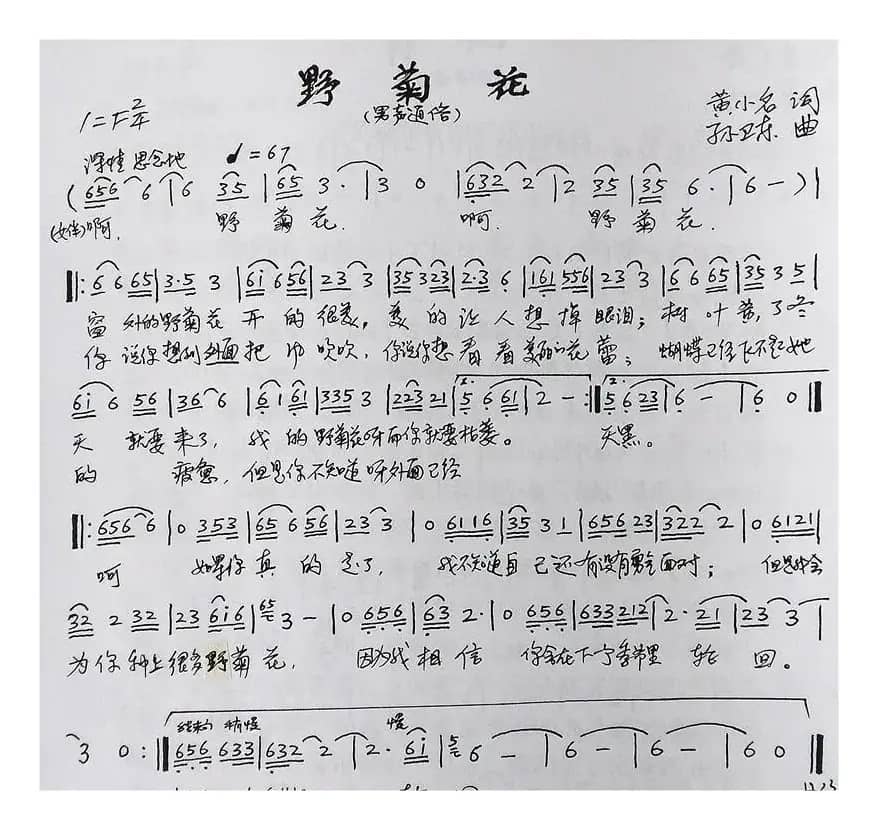 野菊花
(男声通俗)
1=F 2/4
黄小名 词
孙卫东 曲
深情思念地 ♩=67
( 656 6 | 6 35 | 65 3· | 3 0 | 632 2 | 2 35 | 35 6· | 6 - ) |
(女伴)啊. 野菊花. 啊. 野菊花.
‖: 6 6 65 | 3·5 3 | 6i 656 | 23 3 | 35 323 | 2·3 6 | 161 556 | 23 3 | 6 6 65 | 35 3 5 |
窗外的野菊花开的很美，美的让人想掉眼泪；树叶黄了冬
你说你想到外面把 吹吹，你说你想看看美丽的花蕾；蝴蝶已经飞不起她
6i 6 56 | 36 6 | 6 i 6i | 335 3 | 2223 21 | 5 6 61 | 2 - :‖ 5 6 23 | 6 - | 6 0 ‖
天就要来了，我的野菊花呀而你就要枯萎。 天黑。
的疲惫，但是你不知道呀外面已经
‖: 656 6 | 0 353 | 65 6 56 | 23 3 | 0 6116 | 35 3 1 | 656 23 | 322 2 | 0 6121 |
呵 如果你真的走了，我不知道自己还有没有勇气面对；但是我会
32 2 32 | 23 6i6 | 65 3 - | 0 656 | 63 2· | 0 656 | 633 212 | 2· 21 | 23 3 |
为你种上很多野菊花，因为我相信你会在下个季节里轮回。
结束句 稍慢 慢
3 0 :‖ 656 633 | 632 2 | 2· 6i | 5 6 - | 6 - | 6 - | 6 0 ‖